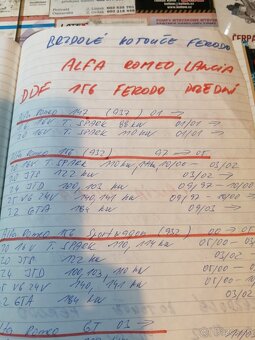 BRZDOVÉ KOTOUČE FERODO
ALFA ROMEO, LANCIA
DDF 156 FERODO PŘEDNÍ
Alfa Romeo 147 (937) 01 →
1.6 16V T. SPARK 88 kW 01/01 →
2.0 16V T. SPARK 110 kW 01/01 →
Alfa Romeo 156 (932) 97 → 05
16V T. SPARK 110 kW, 114 kW 10/00 - 03/02
2.0 JTS 122 kW 03/02 →
2.4 JTD 100, 103 kW 09/97 - 10/00
2.5 V6 24V 140, 141 kW 09/97 →
3.2 GTA 184 kW 09/03 →
Alfa Romeo 156 Sportwagon (932) 00 → 05
2.0 16V T. SPARK 110, 114 kW 05/00 - 03/02
2.0 JTS 122 kW 03/02
2.4 JTD 100, 103, 110 kW 05/00
2.5 V6 24V 140, 141 kW 05/00
3.2 GTA 184 kW 03/02
Alfa Romeo GT 03 →
11/03